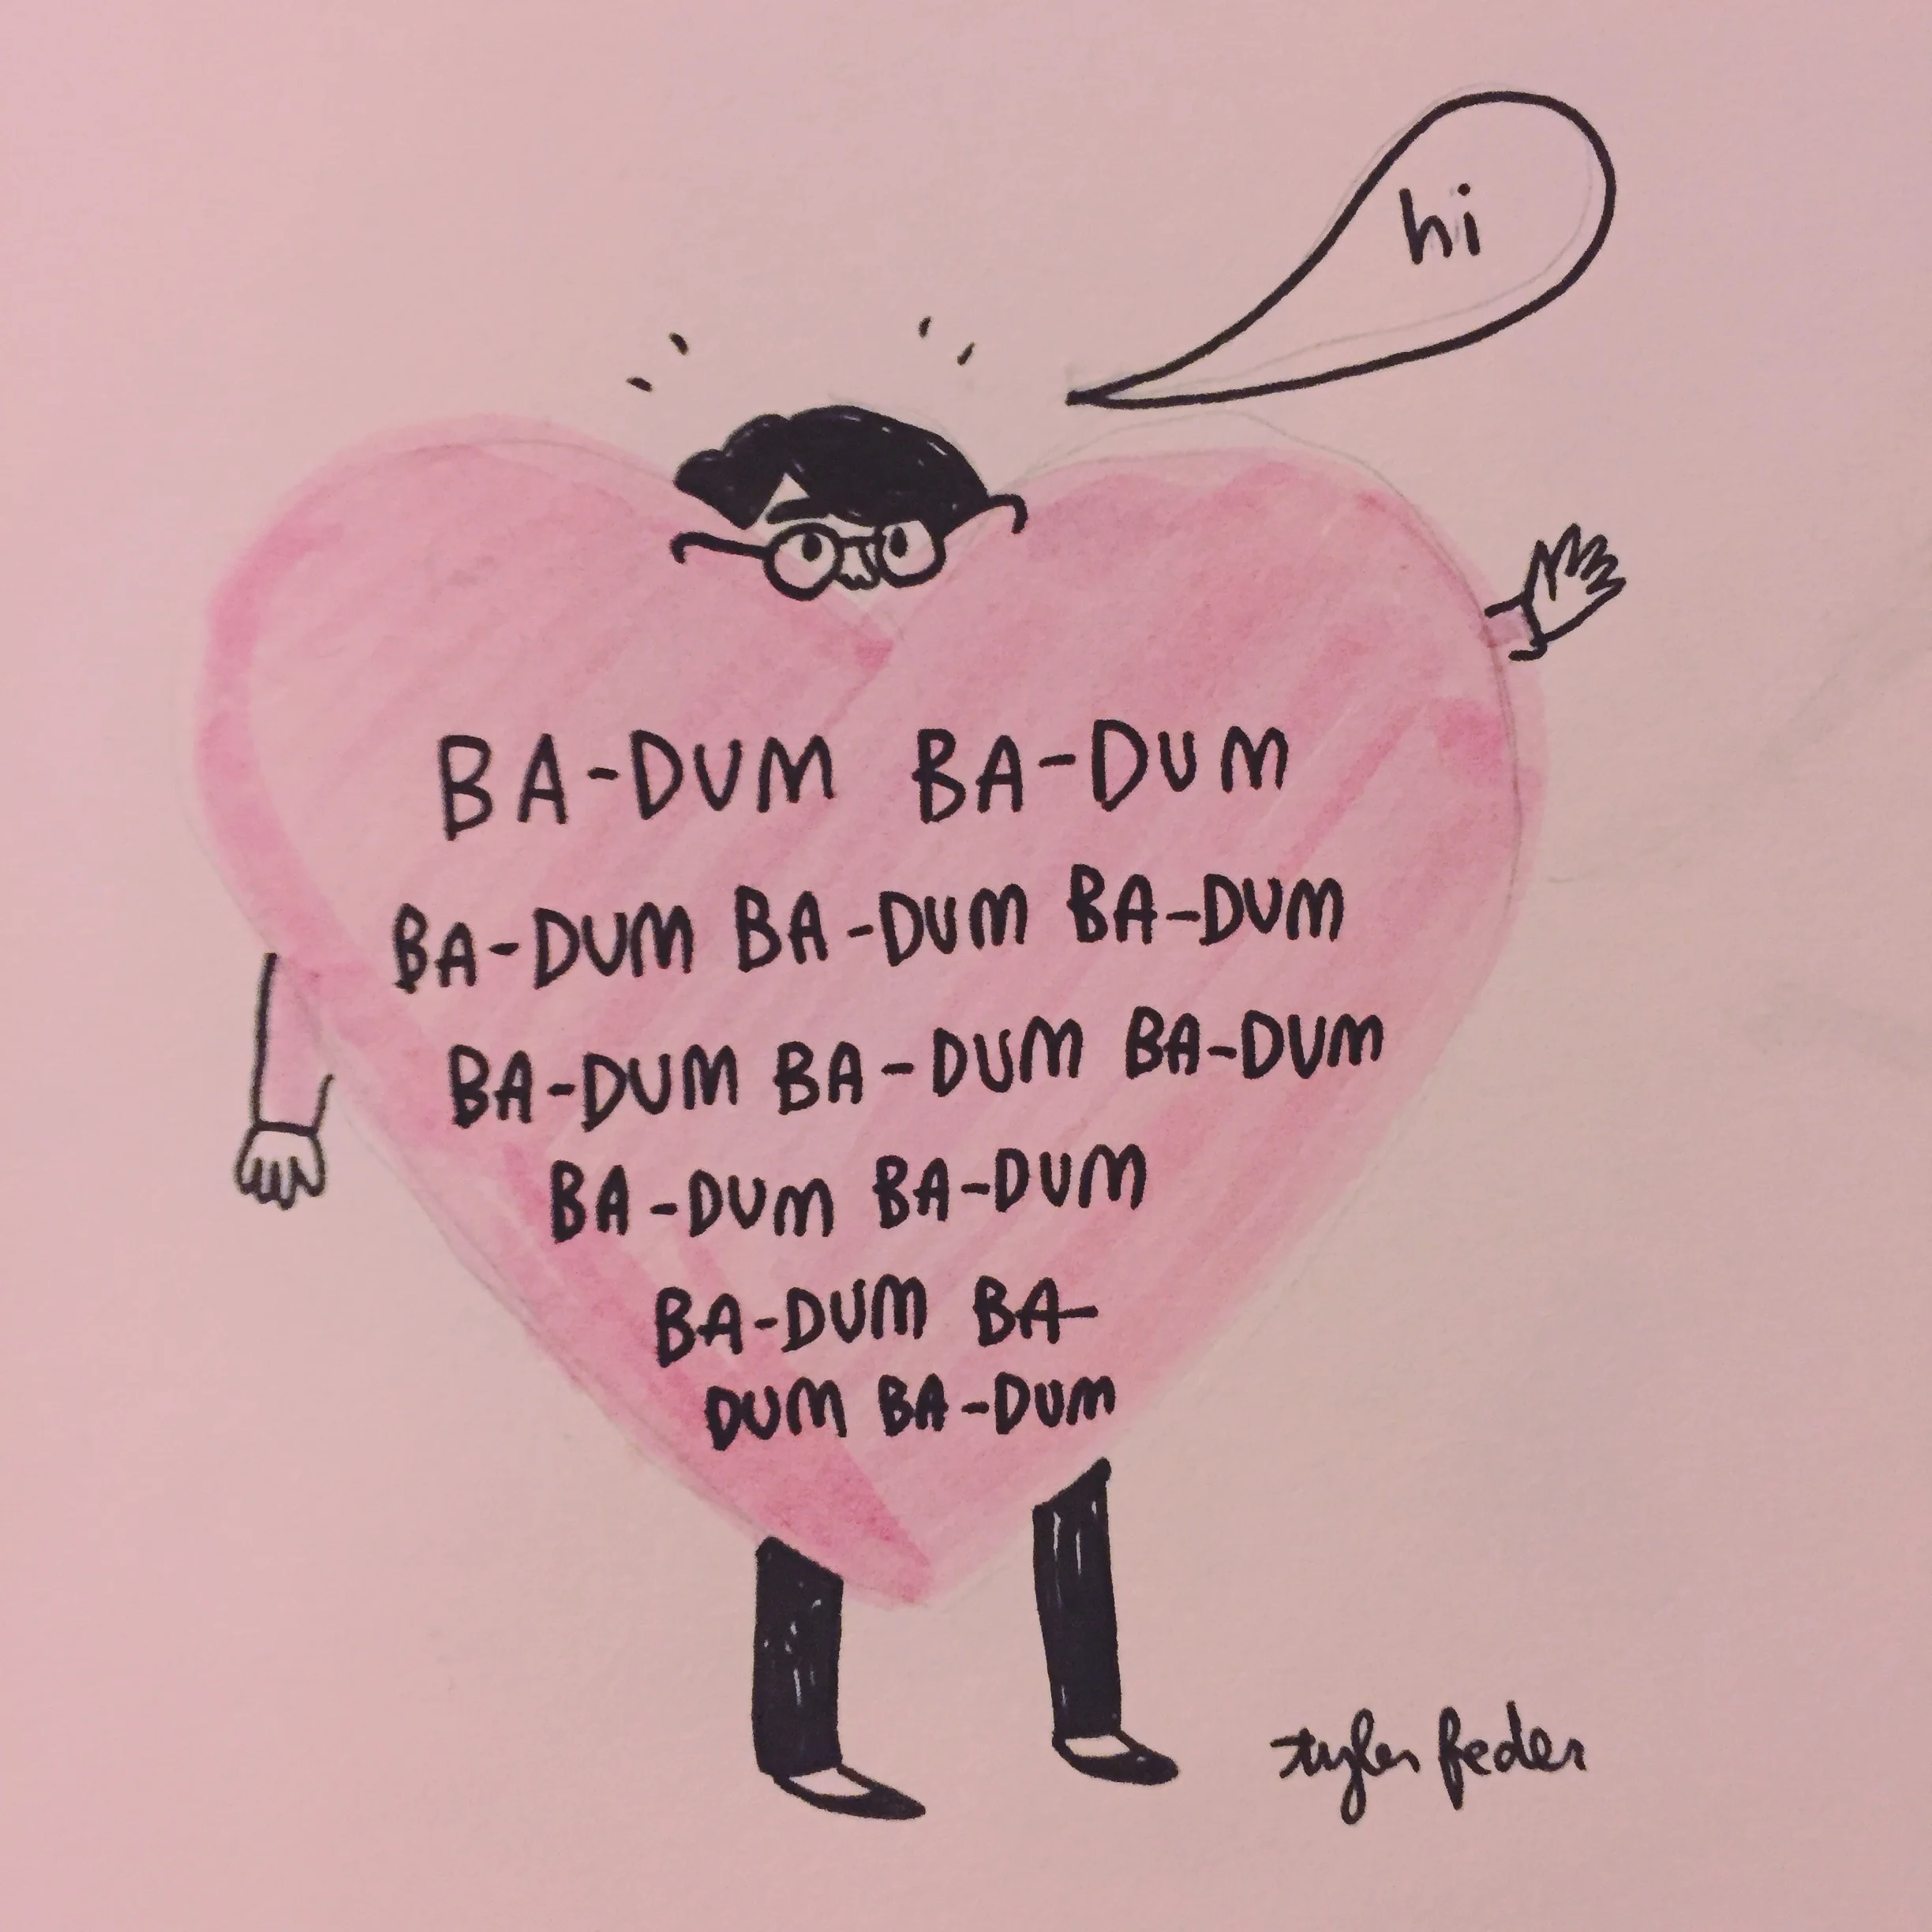 hi
BA-DUM BA-DUM
BA-DUM BA-DUM BA-DUM
BA-DUM BA-DUM BA-DUM
BA-DUM BA-DUM
BA-DUM BA-
DUM BA-DUM
tyler feder